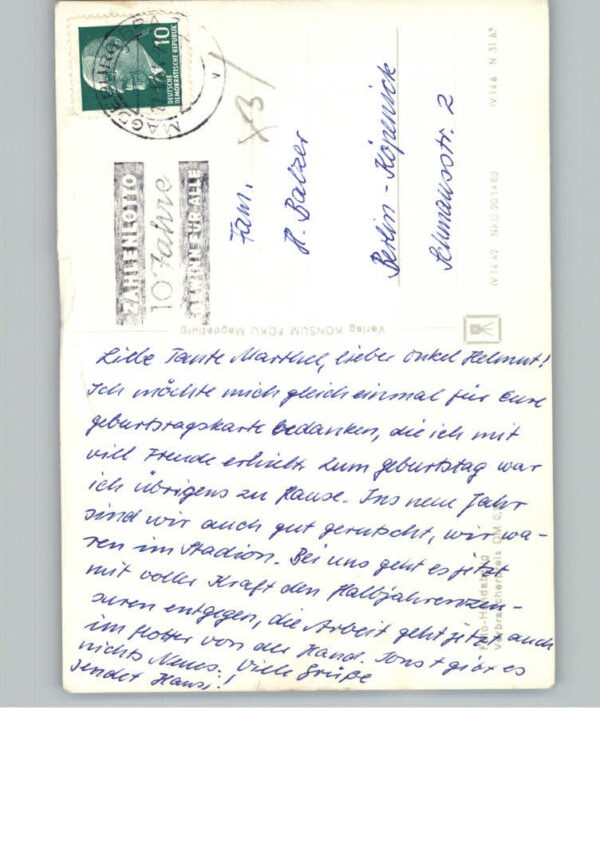 Liebe Tante Marthel, lieber Onkel Helmut!
Ich möchte mich gleich einmal für Eure
Geburtstagskarte bedanken, die ich mit
viel Freude erhielt. Zum Geburtstag war
ich übrigens zu Hause. Ins neue Jahr
sind wir auch gut gerutscht, wir wa-
ren im Stadion. Bei uns geht es jetzt
mit voller Kraft den Halbjahreszen-
suren entgegen, die Arbeit geht jetzt auch
im flotter von der Hand. Sonst gibt es
nichts Neues. Viele Grüße
sendet Hansi!
Fam.
H. Balzer
Berlin - Köpenick
Schmausstr. 2
10
DEUTSCHE
DEMOKRATISCHE REPUBLIK
MAGDEBURG
ZAHLENLOTTO
10 Jahre
GEWINN FÜR ALLE
Verlag KONSUM FOKU Magdeburg
IV 14 6 N 31 63